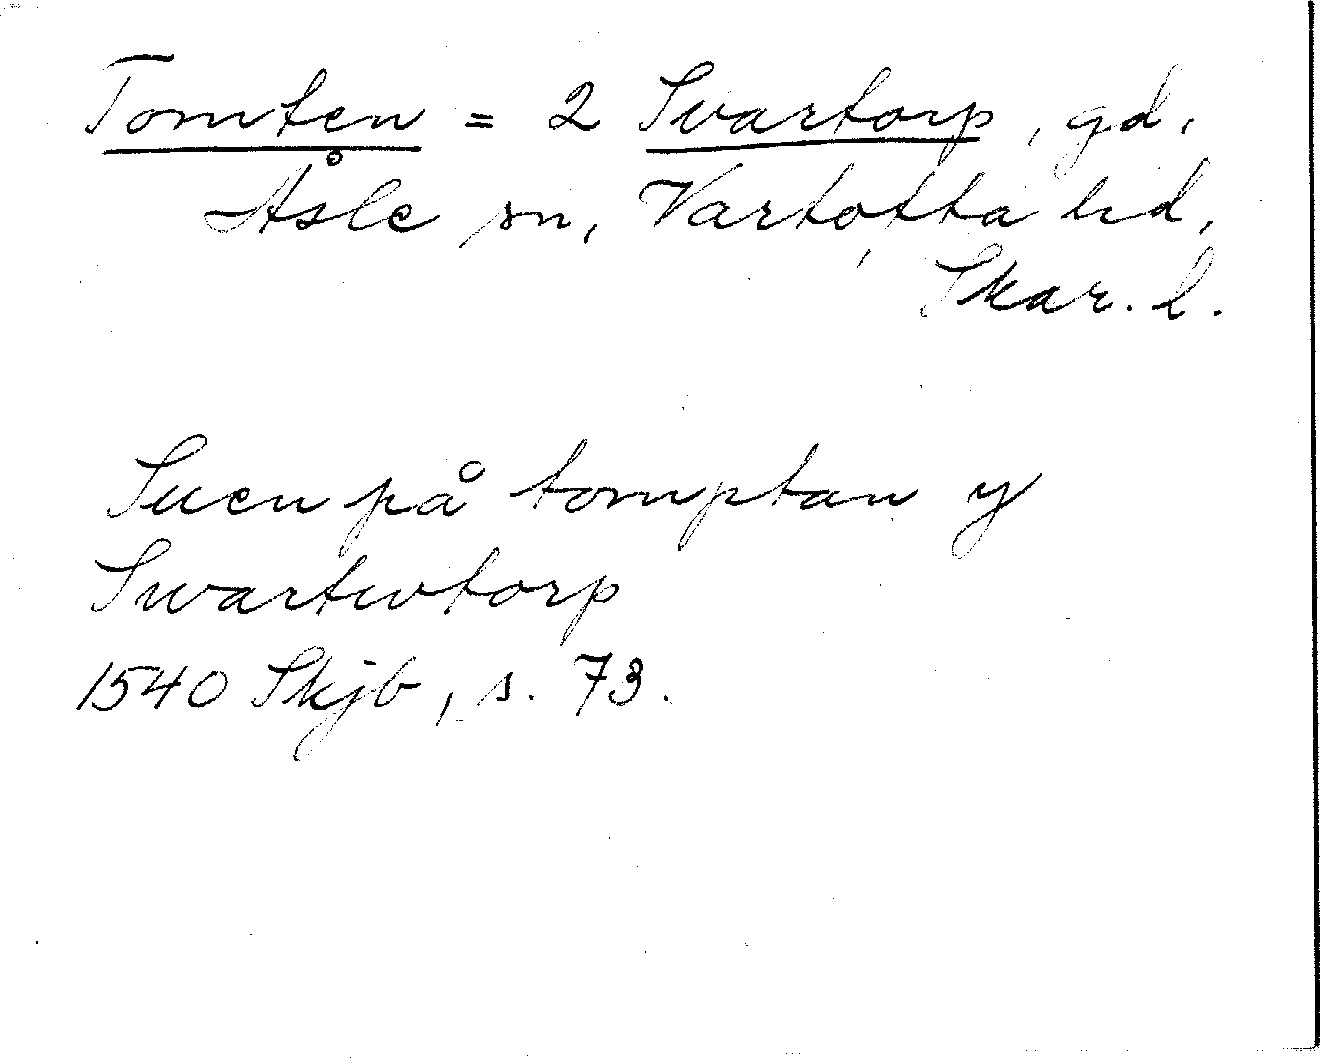 Tomten = 2 Svartorp, gd,
Åsle sn, Vartofta hd,
Skar. l.
Suen på tomptan y
Swartwtorp
1540 Skjb, s. 73.